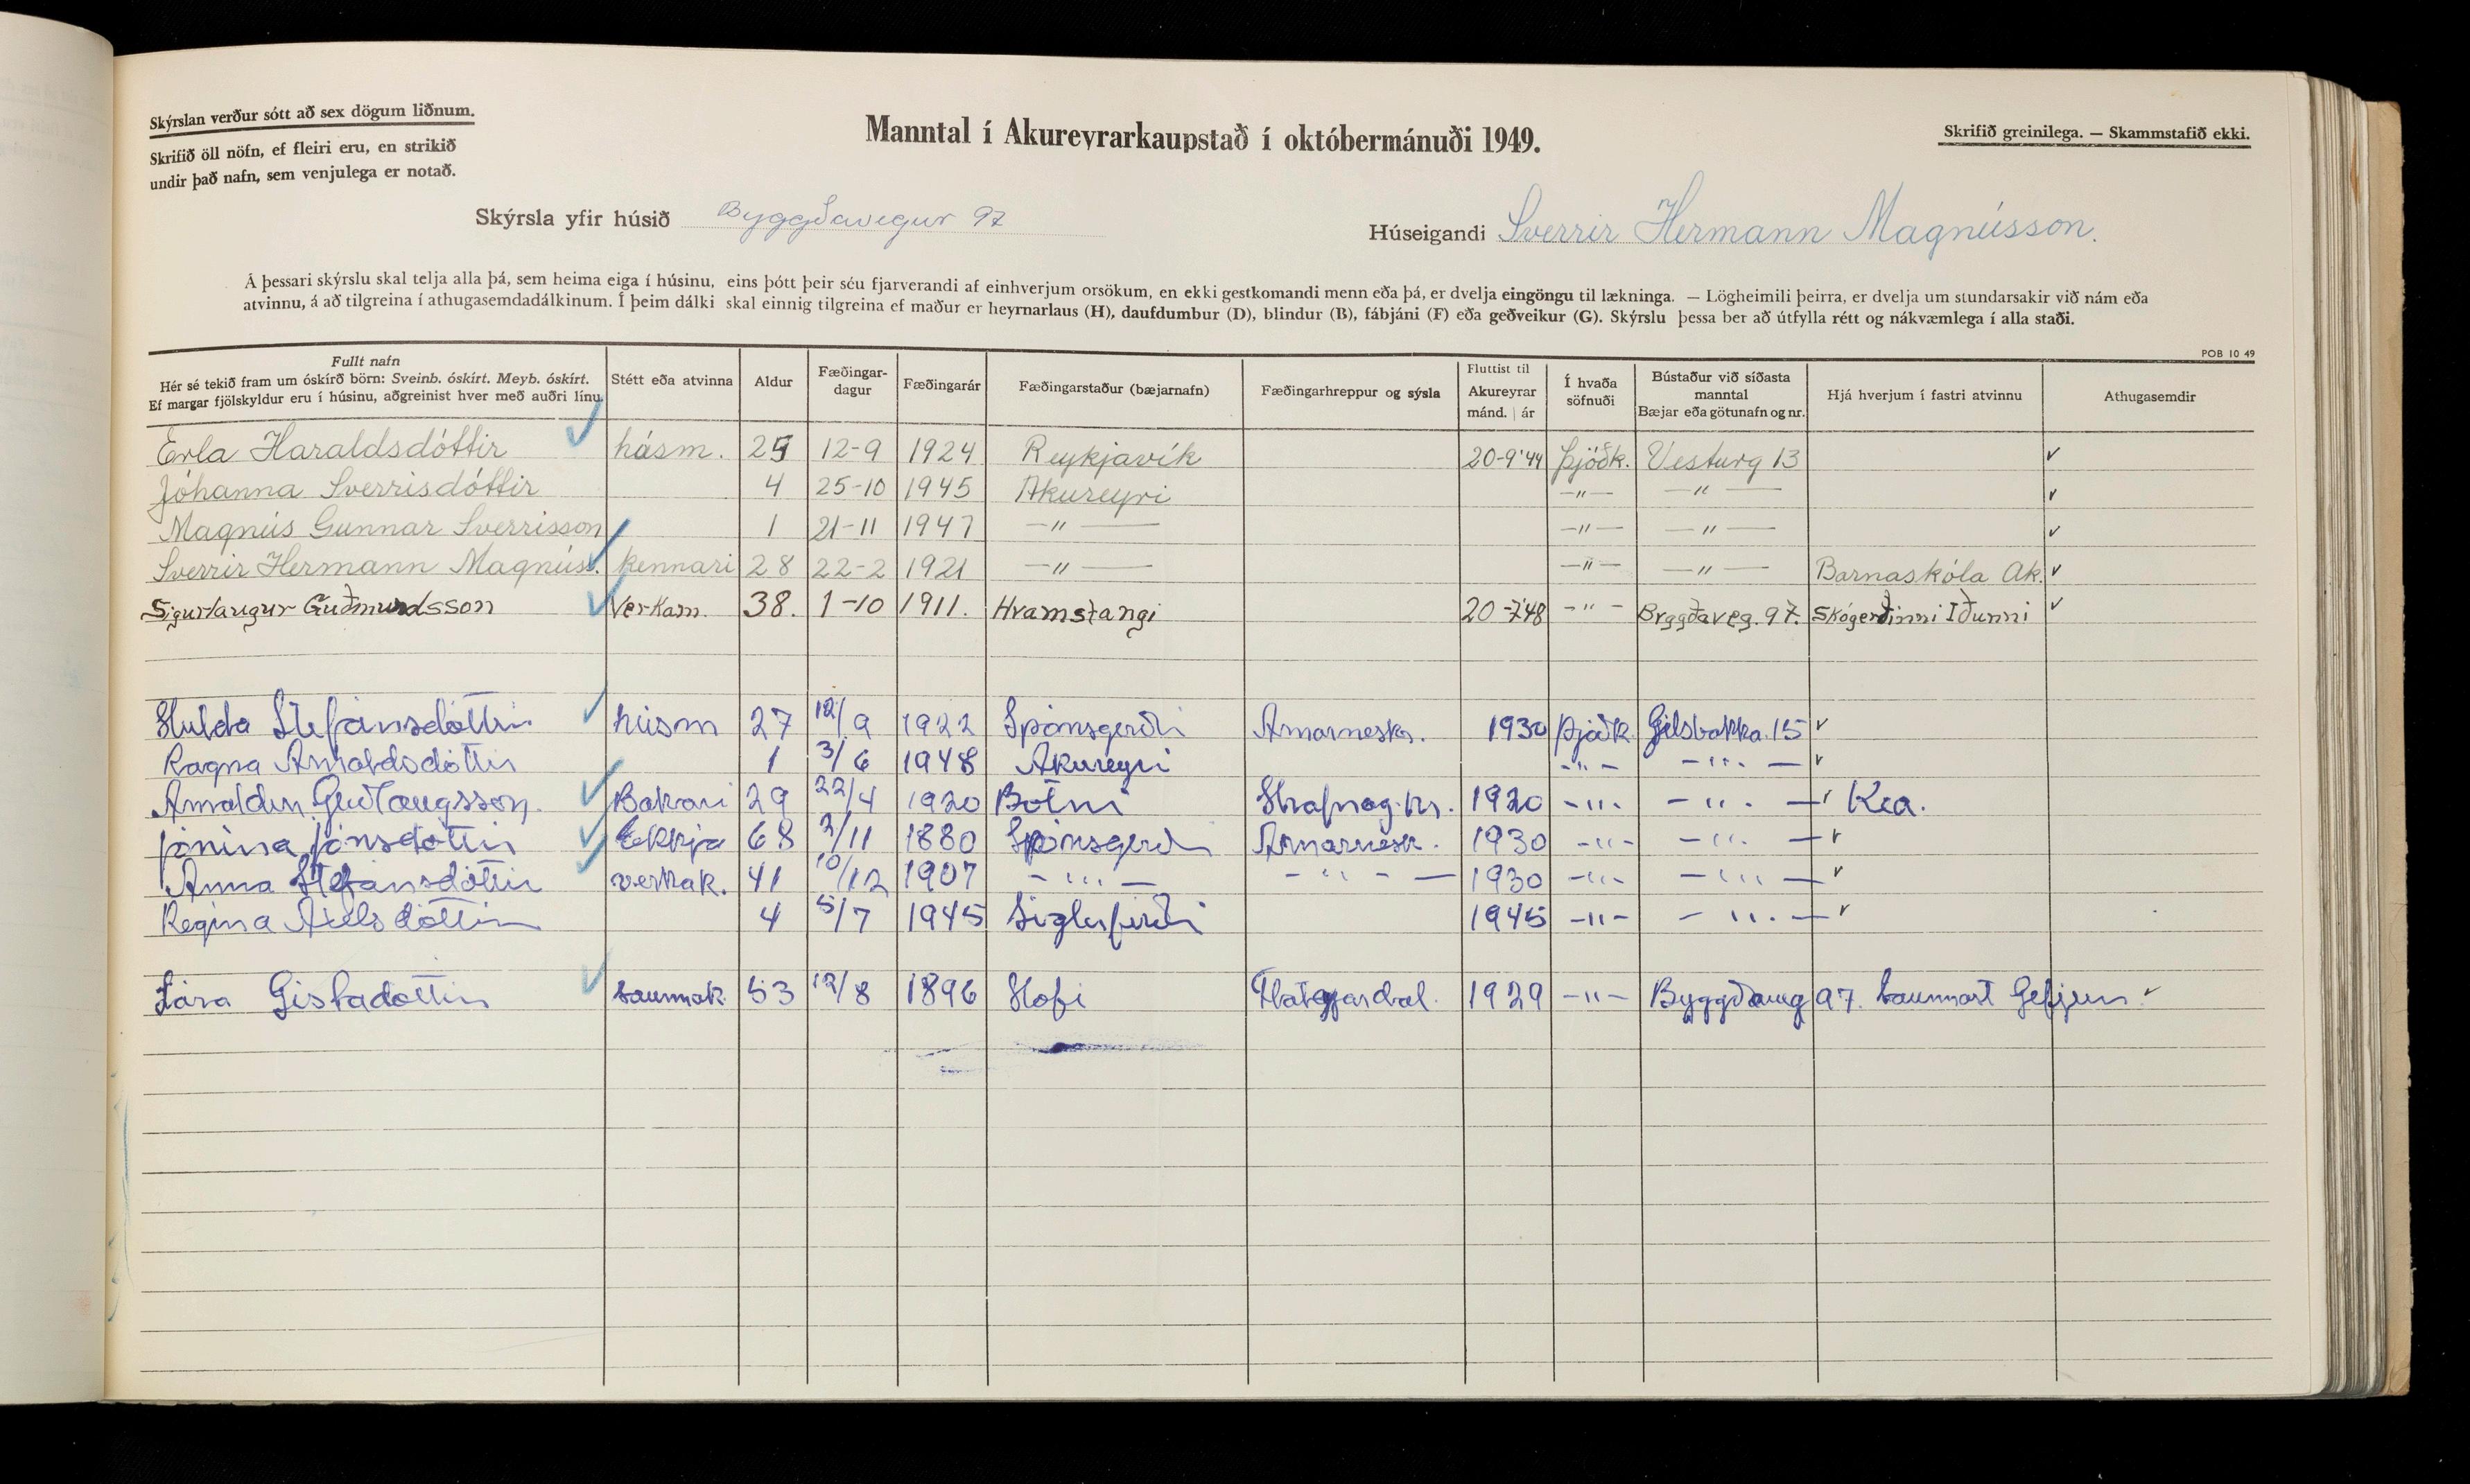 Skýrslan verður sótt að sex dögum liðnum.
Skrifið öll nöfn, ef fleiri eru, en strikið
undir það nafn, sem venjulega er notað.
Manntal í Akureyrarkaupstað í októbermánuði 1949.
Skrifið greinilega. — Skammstafið ekki.
Skýrsla yfir húsið Byggðavegur 97
Húseigandi Sverrir Hermann Magnússon.
Á þessari skýrslu skal telja alla þá, sem heima eiga í húsinu, eins þótt þeir séu fjarverandi af einhverjum orsökum, en ekki gestkomandi menn eða þá, er dvelja eingöngu til lækninga. — Lögheimili þeirra, er dvelja um stundarsakir við nám eða
atvinnu, á að tilgreina í athugasemdadálkinum. Í þeim dálki skal einnig tilgreina ef maður er heyrnarlaus (H), daufdumbur (D), blindur (B), fábjáni (F) eða geðveikur (G). Skýrslu þessa ber að útfylla rétt og nákvæmlega í alla staði.
POB 10 49
Fullt nafn
Hér sé tekið fram um óskírð börn: Sveinb. óskírt. Meyb. óskírt.
Ef margar fjölskyldur eru í húsinu, aðgreinist hver með auðri línu.
Stétt eða atvinna
Aldur
Fæðingar-
dagur
Fæðingarár
Fæðingarstaður (bæjarnafn)
Fæðingarhreppur og sýsla
Fluttist til
Akureyrar
mánd. | ár
Í hvaða
söfnuði
Bústaður við síðasta
manntal
Bæjar eða götunafn og nr.
Hjá hverjum í fastri atvinnu
Athugasemdir
Erla Haraldsdóttir húsm. 25 12-9 1924 Reykjavík 20-9'44 Þjóðk. Vesturg 13
Jóhanna Sverrisdóttir 4 25-10 1945 Akureyri —〃— —〃—
Magnús Gunnar Sverrisson 1 21-11 1947 —〃— —〃— —〃—
Sverrir Hermann Magnúss. kennari 28 22-2 1921 —〃— —〃— —〃— Barnaskóla Ak.
Sigurlaugur Guðmundsson Verkam. 38. 1-10 1911. Hvamstangi 20-7'48 -〃- Byggðaveg. 97. Skógerðinni Iðunni
Hulda Stefánsdóttir húsm 27 12/9 1922 Spónsgerði Arnarneshr. 1930 Þjóðk. Gilsbakka. 15
Ragna Arnaldsdóttir 1 3/6 1948 Akureyri -〃- -〃-
Arnaldur Guðlaugsson. Bakari 29 22/4 1920 Botni Hrafnag.hr. 1920 -〃- -〃- Kea.
Jónína Jónsdóttir Ekkja 68 2/11 1880 Spónsgerði Arnarnesh. 1930 -〃- -〃-
Anna Stefánsdóttir verkak. 41 10/12 1907 -〃- -〃- 1930 -〃- -〃-
Regína Axelsdóttir 4 5/7 1945 Siglufirði 1945 -〃- -〃-
Lára Gísladóttir saumak. 53 12/8 1896 Hofi 1929 -〃- Byggðaveg 97. Gefjun